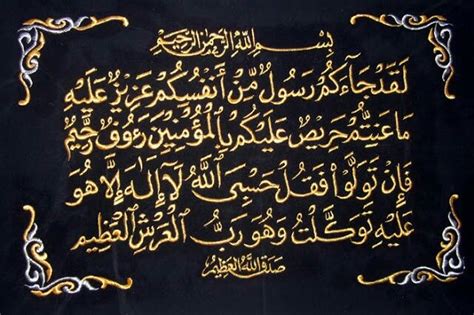 بِسْمِ اللّٰهِ الرَّحْمٰنِ الرَّحِيْمِ
لَقَدْ جَآءَكُمْ رَسُولٌ مِّنْ أَنْفُسِكُمْ عَزِيزٌ عَلَيْهِ
مَاعَنِتُّمْ حَرِيْصٌ عَلَيْكُمْ بِالْمُؤْمِنِيْنَ رَءُوْفٌ رَّحِيْمٌ
فَإِنْ تَوَلَّوْا فَقُلْ حَسْبِىَ اللّٰهُ لَآ إِلٰهَ إِلَّا هُوَ
عَلَيْهِ تَوَكَّلْتُ وَهُوَ رَبُّ الْعَرْشِ الْعَظِيْمِ
صَدَقَ اللّٰهُ الْعَظِيْمُ